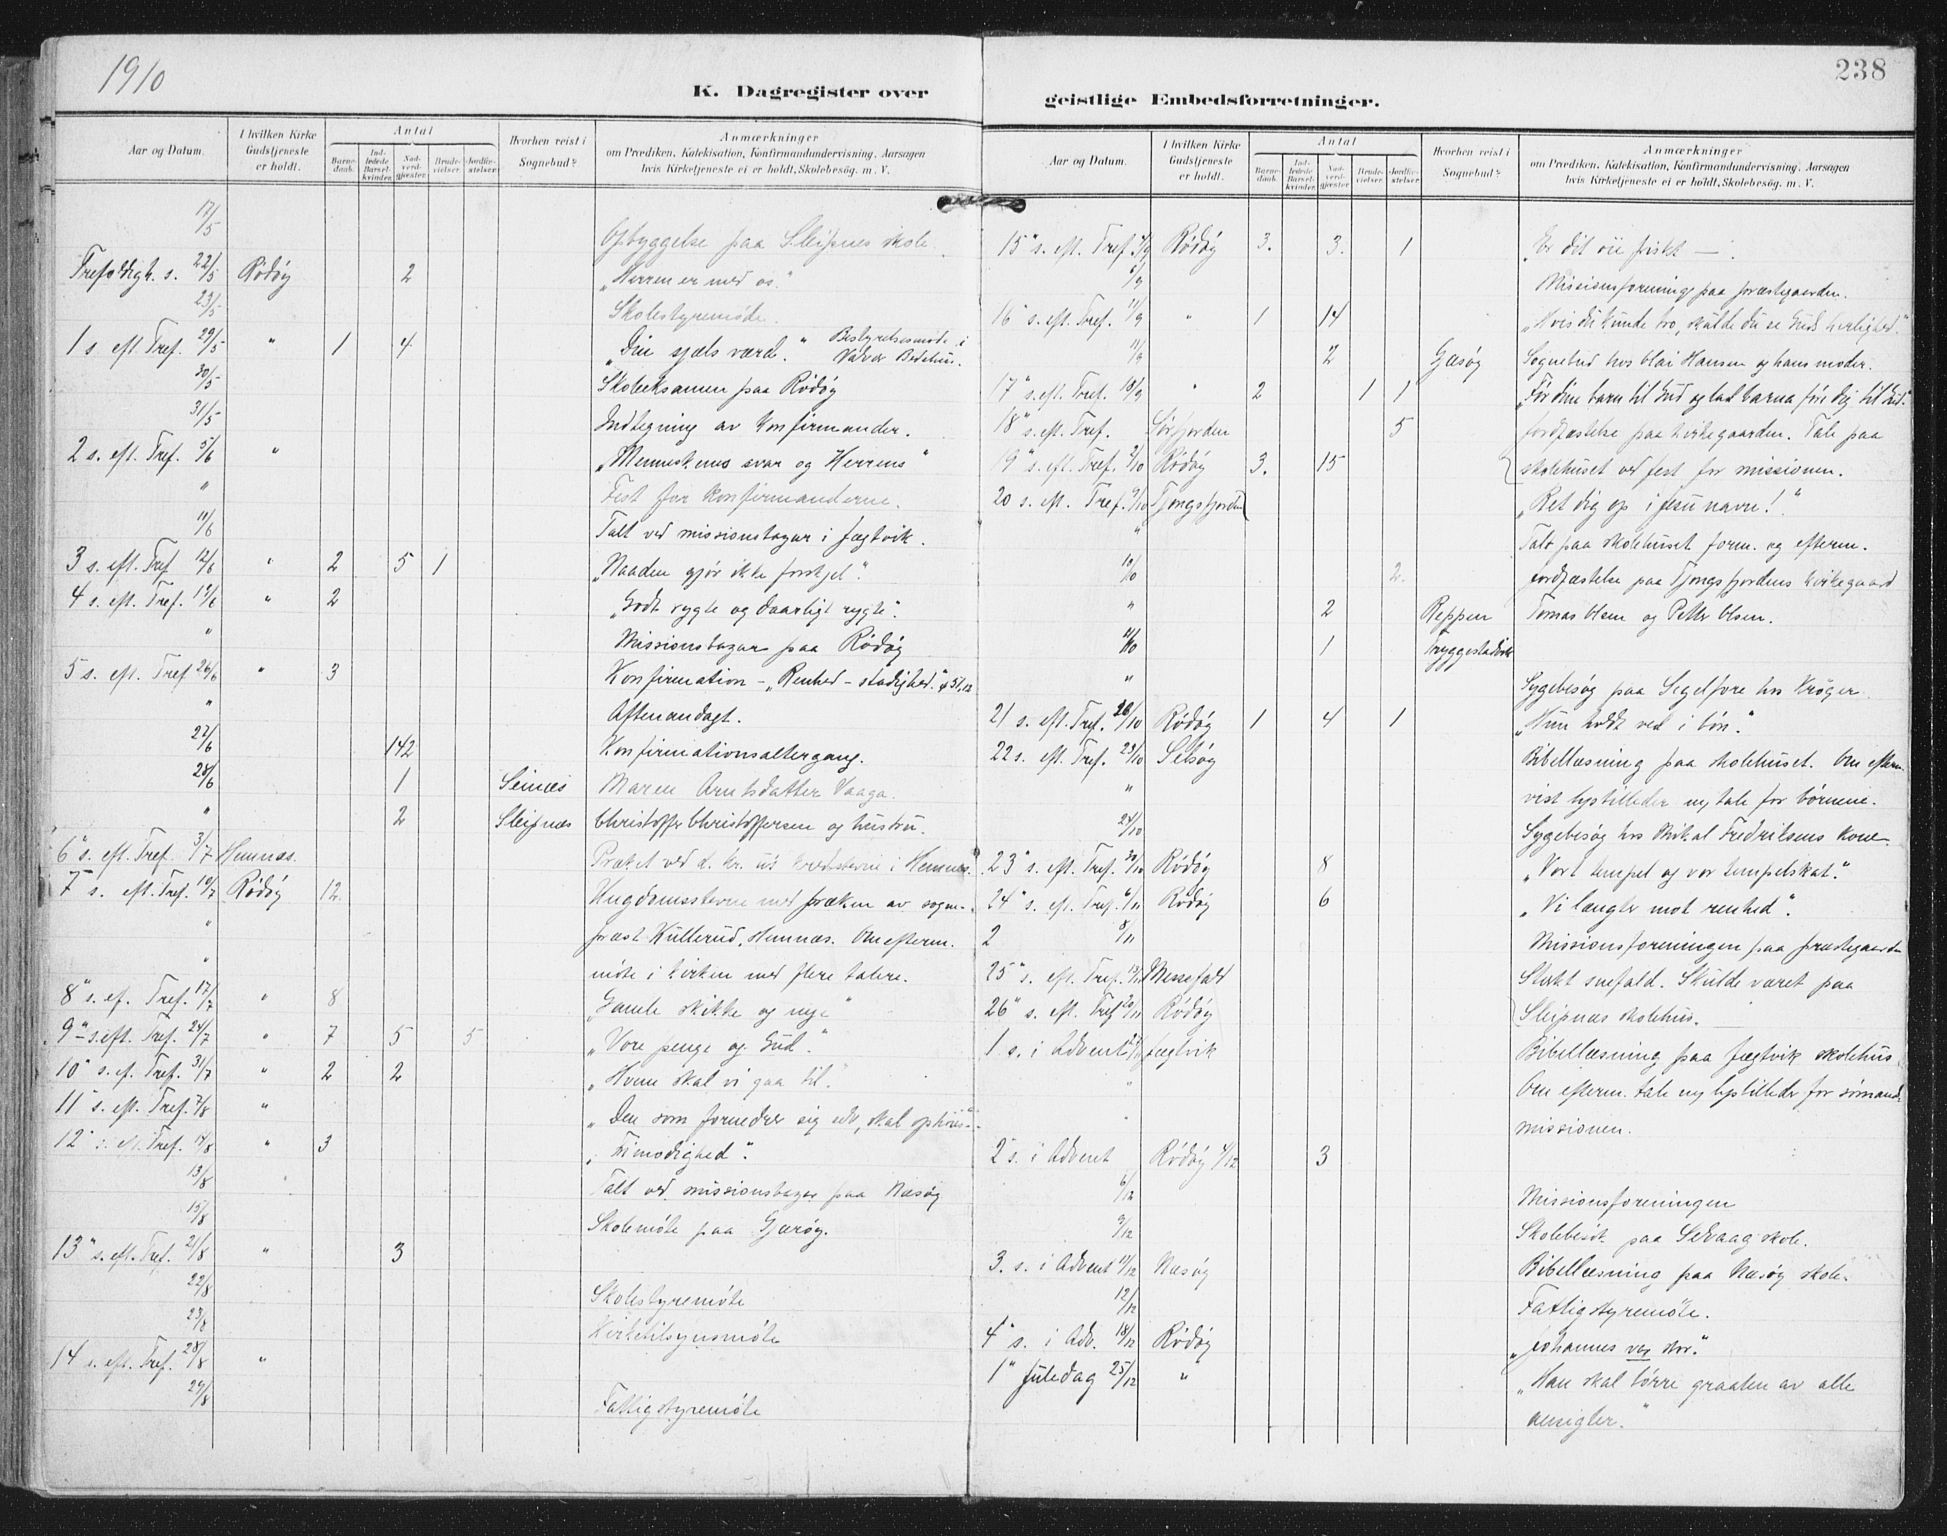 1910
238
K. Dagregister over
geistlige Embedsforretninger.
Aar og Datum.
I hvilken Kirke Gudstjeneste er holdt.
Antal
Barnedaab.
Indledede Barselkvinder.
Nadverdgjester.
Brudevielser.
Jordfæstelser.
Hvorhen reist i Sognebud?
Anmærkninger
om Prædiken, Katekisation, Konfirmandundervisning. Aarsagen
hvis Kirketjeneste ei er holdt, Skolebesøg. m. V.
17/5 Opbyggelse paa Sleipnes skole.
Trefoldigh. s. 22/5 Rödöy 2 „Herren er med os."
23/5 Skolestyremöde.
1 s. eft. Tref. 29/5 " 1 4 „Din sjæls værd." Bestyrelsesmöde i Valvær Bedehus.
30/5 Skoleeksamen paa Rödöy
31/5 Indtegning av konfirmander.
2 s. eft. Tref. 5/6 " „Menneskenes svar og Herrens"
" Fest for konfirmanderne.
11/6 Talt ved missionsbazar i Jægtvik.
3 s. eft. Tref 12/6 " 2 5 1 „Naaden gjør ikke forskjel".
4 s. eft. Tref. 19/6 " 2 „Godt rygte og daarligt rygte".
" Missionsbazar paa Rödöy
5 s. eft. Tref 26/6 " 3 Konfirmation – „Renhed – stadighed."
" Aftenandagt.
27/6 142 Konfirmationsaltergang.
28/6 1 Seinæs Maren Arntsdatter Vaaga.
" 2 Sleipnæs Christoffer Christoffersen og hustru.
6" s. eft. Tref. 3/7 Hemnæs. Præket ved d. kr. u's kredsstevne i Hemnes.
7 s. eft. Tref. 10/7 Rödöy 12. Ungdomsstevne med præken av sogne-
" præst Kullerud, Hemnæs. Om efterm.
" möte i kirken med flere talere.
8" s. ef. Tref. 17/7 " 8 „Gamle skikke og nye"
9" s. eft. Tref. 24/7 " 7 5 5 „Vore penge og Gud."
10" s. ef. Tref. 31/7 " 2 2 „Hvem skal vi gaa til."
11" s. eft. Tref. 7/8 " „Den som fornedrer sig selv, skal ophöies"
12" s. eft. Tref. 14/8 " 3 „Frimodighed".
13/8 Talt ved missionsbazar paa Næsöy
15/8 Skolemöte paa Gjæröy.
13" s. eft. Tref. 21/8 " 3
22/8 Skolestyremöte
23/8 Kirketilsynsmöte
14 s. eft. Tref. 28/8 "
29/8 Fattigstyremöte
Aar og Datum.
I hvilken Kirke Gudstjeneste er holdt.
Antal
Barnedaab.
Indledede Barselkvinder.
Nadverdgjester.
Brudevielser.
Jordfæstelser.
Hvorhen reist i Sognebud?
Anmærkninger
om Prædiken, Katekisation, Konfirmandundervisning. Aarsagen
hvis Kirketjeneste ei er holdt, Skolebesøg. m. V.
15" s. eft. Tref. 4/9 Rödöy 3. 3. 1 „Er dit öie friskt —".
6/9 Missionsforening paa præstegaarden.
16" s. eft. Tref. 11/9 " 1 14 „Hvis du kunde tro, skulde du se Guds herlighed."
11/9 2 Gæsöy Sognebud hos Olai Hansen og hans moder.
17" s. eft. Tref. " 2 1 1 „För dine barn til Gud og lad barna före dig til Gud."
18" s. eft. Tref. Sörfjorden 5 Jordfæstelse paa kirkegaarden. Tale paa
9" s. eft. Tref. 2/10 Rödöy 3. 15 skolehuset ved fest for missionen.
20 s. eft. Tref. 9/10 Tjongsfjorden „Ret dig op i Jesu navn!"
" Tale paa skolehuset form. og efterm.
10/10 2. Jordfæstelse paa Tjongsfjordens kirkegaard
" 2 Reppen Tomas Olsen og Petter Olsen.
11/10 1 Tryggestadvik
" Sygebesög paa Segelfore hos Kröger
21 s. eft. Tref. /10 Rödöy 1 4 1 „Hun holdt ved i bön."
22 s. eft. Tref. 23/10 Selsöy Bibellæsning paa skolehuset. Om efterm.
" vist lysbilleder og tale for börnene.
24/10 Sygebesög hos Mikal Fredriksens kone
23" s. eft. Tref. 30/10 Rödöy 8 „Vort tempel og vor tempelskat."
24" s. eft. Tref. 6/11 Rödöy 6 „Vi længter mot renhed".
2 8/11 Missionsforeningen paa præstegaarden
25" s. eft. Tref. 13/11 Messefald Sterkt snefald. Skulde været paa
26" s. eft. Tref 20/11 Rödöy Sleipnæs skolehus.
1 s. i Advent Jægtvik Bibellæsning paa Jægtvik skolehus
" Om efterm. tale og lysbilleder for sömands-
" missionen.
2 s. i Advent Rödöy 4/12 3
6/12 Missionsforeningen
9/12 Skolebesök paa Selvaag skole.
3. s. i Advent 11/12 Næsöy Bibellæsning paa Næsöy skole.
12/12 Fattigstyremöte.
4" s. i Adv. 18/12 Rödöy „Johannes var stor."
1" Juledag 25/12 " „Han skal törre graaten av alle
ansigter."